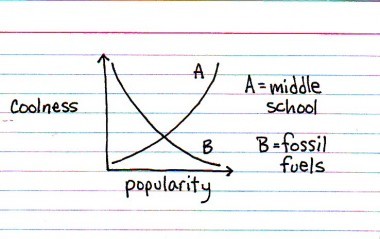 Coolness
A
B
popularity
A = middle
school
B = fossil
fuels